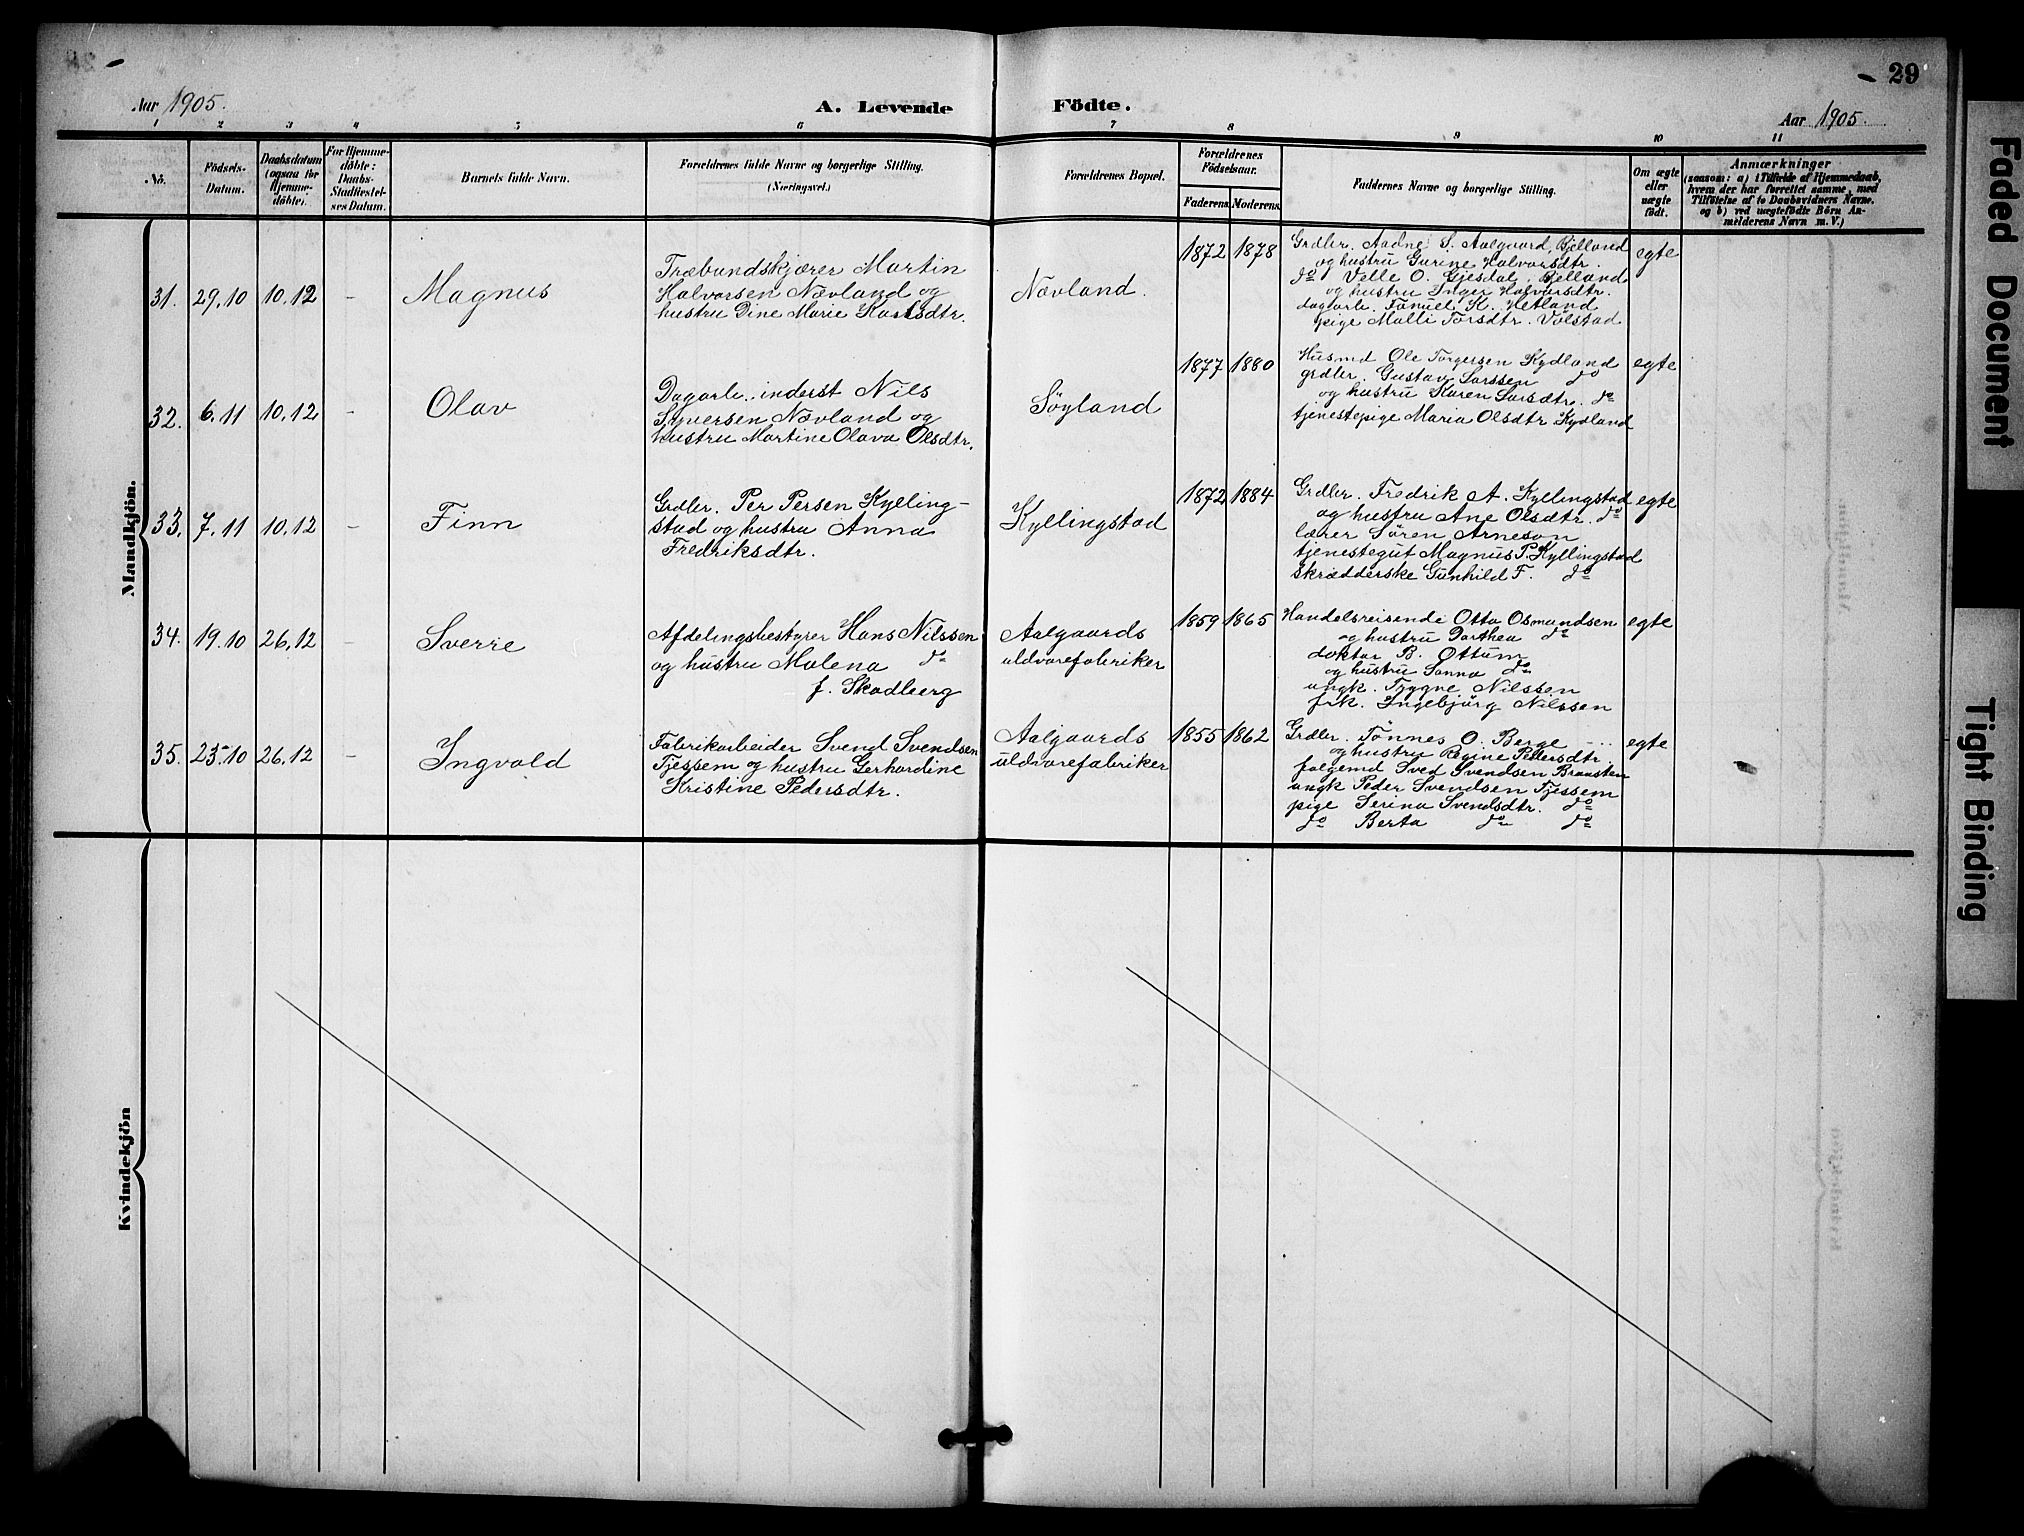 29
Aar 1905.
A. Levende Födte.
Aar 1905.
1 2 3 4 5 6 7 8 9 10 11
No.
Födsels-
Datum.
Daabsdatum
(ogsaa for
Hjemme-
döbte).
For Hjemme-
döbte:
Daabs-
Stadfæstel-
ses Datum.
Barnets fulde Navn.
Forældrenes fulde Navne og borgerlige Stilling.
(Næringsvei.)
Forældrenes Bopæl.
Forældrenes
Födselsaar.
Faderens Moderens
Faddernes Navne og borgerlige Stilling.
Om ægte
eller
uægte
födt.
Anmærkninger
(saasom: a) i Tilfælde af Hjemmedaab,
hvem der har forrettet samme, med
Tilföielse af to Daabsvidners Navne,
og b) ved uægtefödte Börn An-
melderens Navn m. V.)
Mandkjön.
31. 29.10 10.12 - Magnus
Træbundskjærer Martin
Halvorsen Nævland og
hustru Dine Marie
Nævland.
1872 1878
Grdler. Aadne S. Aalgaard, Bjelland
og hustru Gurine Halvorsdtr.
do Velle O. Gjesdal, Bjelland
og hustru Inger Halvorsdtr.
dagarb. Tanuel K. Hetland
pige Malli Torsdtr. Völstad
egte
32. 6.11 10.12 - Olav
Dagarb. inderst Nils
Syversen Nævland og
hustru Martine Olava Olsdtr.
Söyland
1877 1880
Husmd Ole Torgersen Kydland
grdler. Gustav Larssen do
og hustru Karen Larsdtr. do
tjenestepige Maria Olsdtr Kydland
egte
33. 7.11 10.12 - Finn
Grdler. Per Persen Kylling-
stad og hustru Anna
Fredriksdtr.
Kyllingstad
1872 1884
Grdler. Fredrik A. Kyllingstad
og hustru Ane Olsdtr. do
lærer Sören Arneson
tjenestegut Magnus P. Kyllingstad
skrædderske Gunhild F. do
egte
34. 19.10 26.12 - Sverre
Afdelingsbestyrer Hans Nilssen
og hustru Malena do
f. Skadberg
Aalgaards
uldvarefabriker
1859 1865
Handelsreisende Otto Osmundsen
og hustru Dorthea do
doktor B. Ottum
og hustru Sanna do
ungk. Tygne Nilssen
frk. Ingebjörg Nilssen
egte
35. 23.10 26.12 - Ingvald
Fabrikarbeider Svend Svendsen
Tjessem og hustru Gerhardine
Kristine Pedersdtr.
Aalgaards
uldvarefabriker
1855 1862
Grdler. Tönnes O. Berge
og hustru Regine Pedersdtr.
folgemd Sved Svendsen
ungk Peder Svendsen Tjessem
pige Serina Svendsdtr. do
do Berta do do
egte
Kvindekjön
Faded Document
Tight Binding